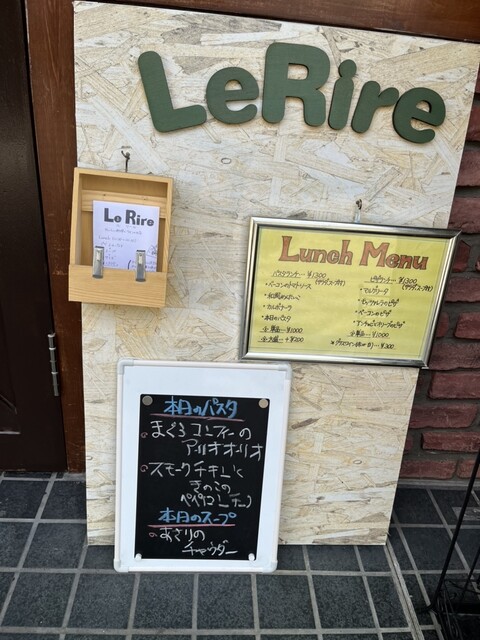 LeRire
Le Rire
Lunch Menu
パスタランチ… ¥1300
(サラダ、スープ付)
・ベーコンのトマトソース
・カルボナーラ
・本日のパスタ
☆単品… ¥1000
☆大盛… +¥200
ピザランチ… ¥1300
(サラダ、スープ付)
・マルゲリータ
・ベーコンのピザ
☆単品… ¥1000
本日のパスタ
まぐろコンフィーの
アーリオオーリオ
スモークチキンと
きのこの
ペペロンチーノ
本日のスープ
あさりの
チャウダー